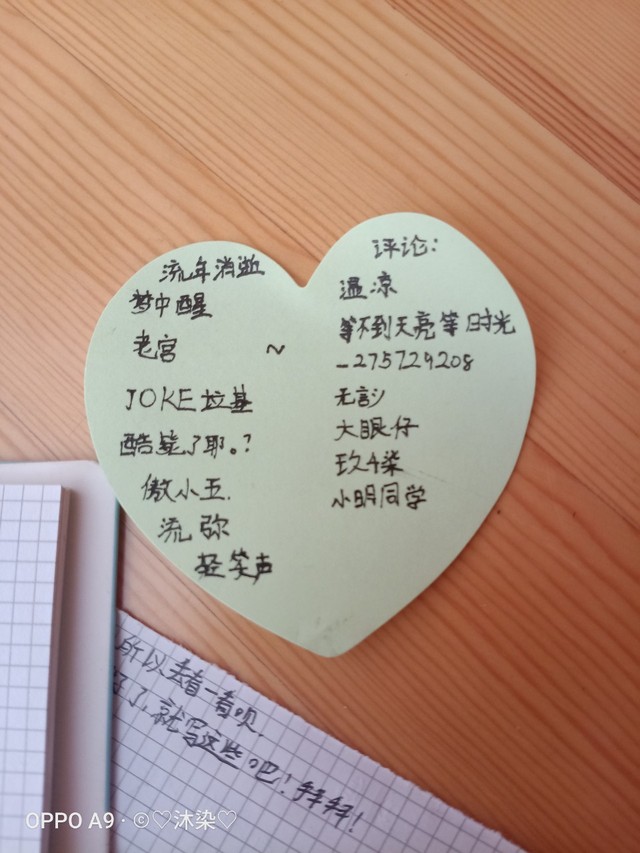 流年消逝
梦中醒
老宫 ~
JOKE垃圾
酷毙了耶。?
傲小五.
流弥
轻笑声
评论:
温凉
等不到天亮等时光
-275729208
无言ツ
大眼仔
玖4柒
小明同学
所以去看一看呗.
好了,就写这些吧!拜拜!
OPPO A9·©♡沐染♡